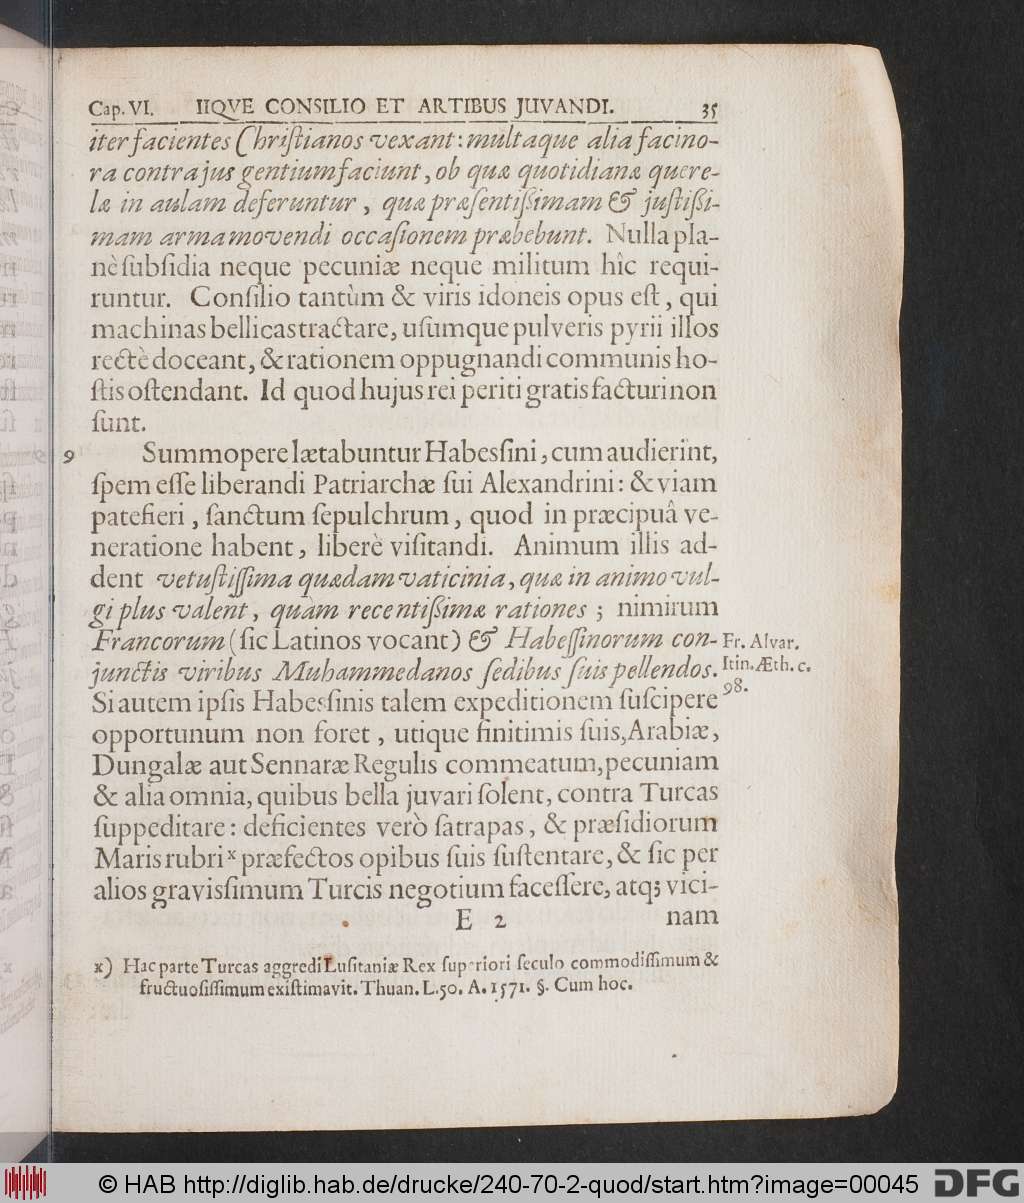 Cap. VI. IIQVE CONSILIO ET ARTIBUS JUVANDI. 35
iter facientes Chriſtianos vexant: multaque alia facino-
ra contra jus gentium faciunt, ob quæ quotidianæ quere-
læ in aulam deferuntur, quæ præſentiſſimam & juſtiſſi-
mam arma movendi occaſionem præbebunt. Nulla pla-
nè ſubſidia neque pecuniæ neque militum hîc requi-
runtur. Conſilio tantùm & viris idoneis opus eſt, qui
machinas bellicas tractare, uſumque pulveris pyrii illos
rectè doceant, & rationem oppugnandi communis ho-
ſtis oſtendant. Id quod hujus rei periti gratis facturi non
ſunt.
9 Summopere lætabuntur Habesſini, cum audierint,
ſpem eſſe liberandi Patriarchæ ſui Alexandrini: & viam
patefieri, ſanctum ſepulchrum, quod in præcipuâ ve-
neratione habent, liberè viſitandi. Animum illis ad-
dent vetuſtiſſima quædam vaticinia, quæ in animo vul-
gi plus valent, quàm recentiſſimæ rationes; nimirum
Francorum (ſic Latinos vocant) & Habeſſinorum con-
junctis viribus Muhammedanos ſedibus ſuis pellendos.
Fr. Alvar.
Itin. Æth. c.
98.
Si autem ipſis Habesſinis talem expeditionem ſuſcipere
opportunum non foret, utique finitimis ſuis, Arabiæ,
Dungalæ aut Sennaræ Regulis commeatum, pecuniam
& alia omnia, quibus bella juvari ſolent, contra Turcas
ſuppeditare: deficientes verò ſatrapas, & præſidiorum
Maris rubri x præfectos opibus ſuis ſuſtentare, & ſic per
alios gravisſimum Turcis negotium faceſſere, atq; vici-
E 2 nam
x) Hac parte Turcas aggredi Luſitaniæ Rex ſuperiori ſeculo commodiſſimum &
fructuoſiſſimum exiſtimavit. Thuan. L. 50. A. 1571. §. Cum hoc.
© HAB http://diglib.hab.de/drucke/240-70-2-quod/start.htm?image=00045
DFG